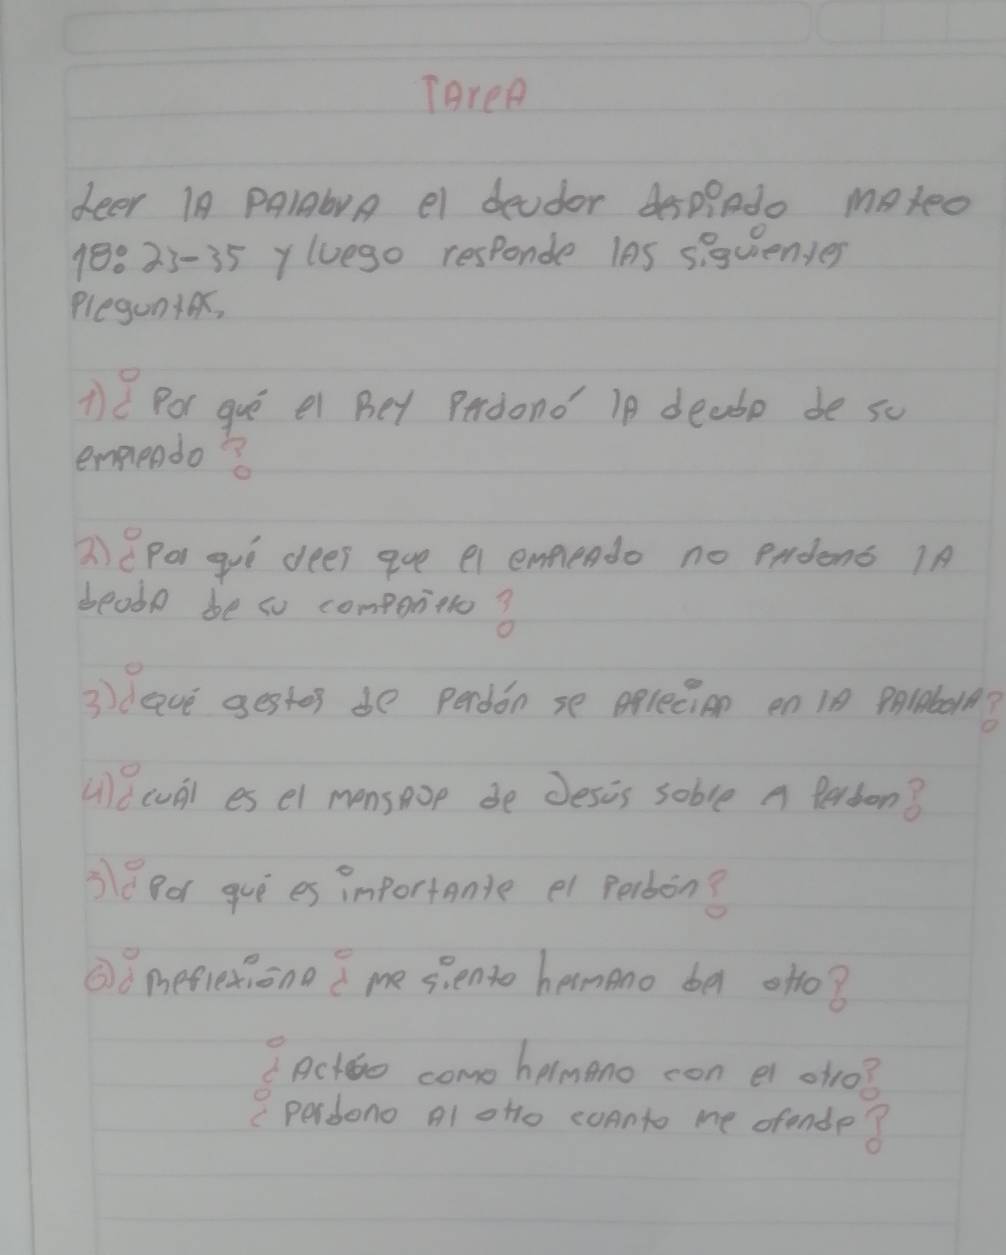 TAreA
Leer lA PAlAbrA el deudor despiAdo MAteo
18: 23-35 y luego responde lAs siguientes
PleguntAs,
1) ¿ Por qué el Rey Perdonó lA deuda de su
empleAdo?
2) ¿Por qué clees que el empleAdo no Perdonó lA
beudA de su compAñero?
3) ¿qué gestos de Perdón se APleciAn en lA PAlAbolA?
4) ¿cuál es el mensAJe de Jesús soble A Perdon?
5) ¿Por qué es importAnte el Perbón?
6) ¿ Reflexiona ¿ me siento hermAno del otro?
¿ Actúo como helmAno con el otro?
¿ Perdono Al otro cuAnto me ofende?